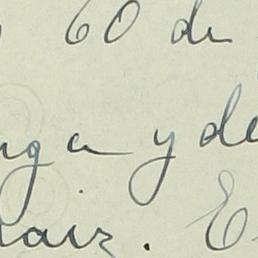 60 de
nga y de
raiz. E